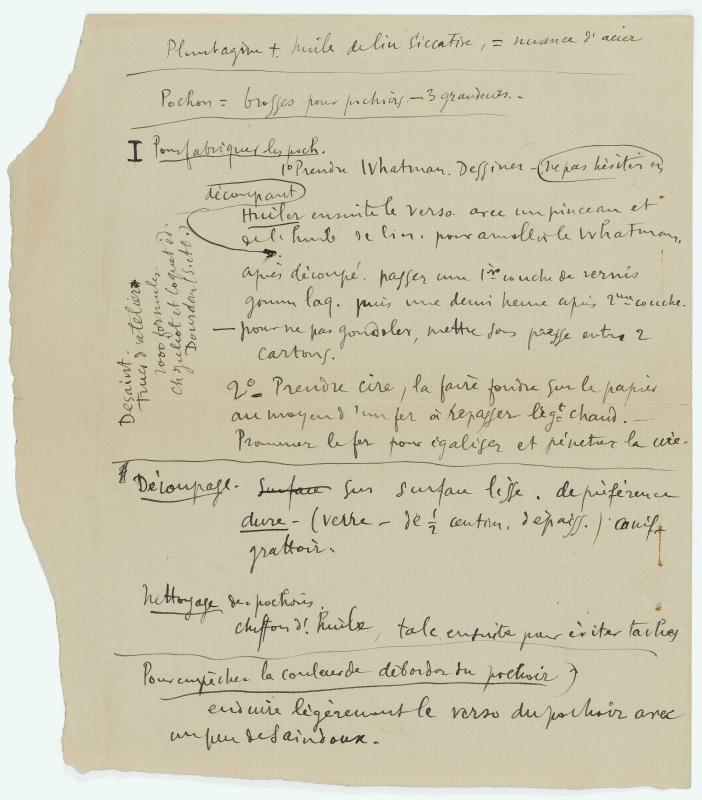 Plombagine + huile de lin siccative, = nuance d'acier
Pochon = brosses pour pochoirs. — 3 grandeurs. -
I Pour fabriquer les poch.
1º Prendre Whatman. Dessiner - (ne pas hésiter en
découpant)
Huiler ensuite le verso avec un pinceau et
de l'huile de lin. pour amollir le Whatman.
après découpé. passer une 1ère couche de vernis
gomm laq. puis une demi heure après 2me couche.
— pour ne pas gondoler, mettre sous presse entre 2
cartons.
Desaint.
Trucs d'atelier
1000 formules.
Ch Juliot et Coquet éd.
Dourdan (S. et O.)
2º — Prendre cire, la faire fondre sur le papier
au moyen d'un fer à repasser légt chaud. —
Promener le fer pour égaliser et pénétrer la cire.
Découpage. Surface sur surface lisse. de préférence
dure - (verre - de ½ centim. d'épaiss.) canif,
grattoir.
Nettoyage des pochoirs.
chiffon d'huile, talc ensuite pour éviter taches
Pour empêcher la couleur de déborder du pochoir
enduire légèrement le verso du pochoir avec
un peu de Saindoux.